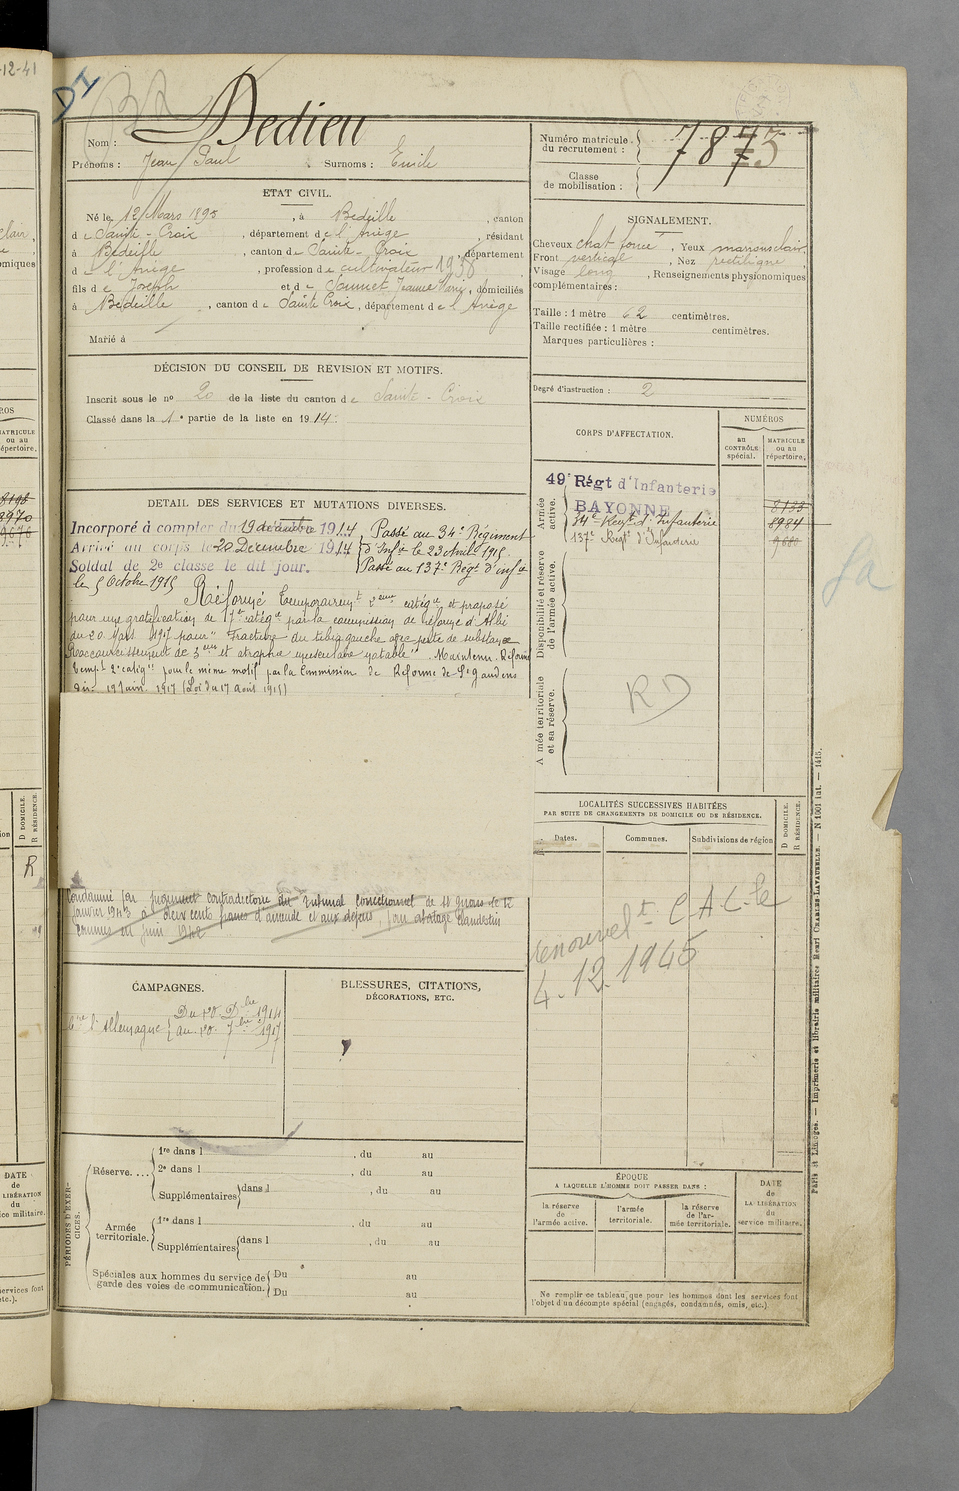 -12-41
DI
Nom : Dedieu
Prénoms : Jean Paul Surnoms : Emile
ETAT CIVIL.
Né le 12 Mars 1895, à Bédeille, canton
de Sainte-Croix, département de l'Ariège, résidant
à Bédeille, canton de Sainte-Croix, département
de l'Ariège, profession de cultivateur 1936
fils de Joseph et de Jeanne Marie, domiciliés
à Bédeille, canton de Sainte Croix, département de l'Ariège
Marié à
DÉCISION DU CONSEIL DE REVISION ET MOTIFS.
Inscrit sous le no 20 de la liste du canton de Sainte-Croix
Classé dans la 1e partie de la liste en 1914.
DETAIL DES SERVICES ET MUTATIONS DIVERSES.
Incorporé à compter du 19 décembre 1914, Passé au 34e Régiment
Arrivé au corps le 20 Décembre 1914 d'Infie le 23 Avril 1915.
Soldat de 2e classe le dit jour. Passé au 137e Régt d'infie
le 5 Octobre 1915
Réformé temporairemt 2eme catégie et proposé
pour une gratification de 1re catégie par la commission de réforme d'Albi
du 20 Mars 1917 pour "Fracture du tibia gauche avec perte de substance
Raccourcissement de 3 cm et atrophie musculaire notable". Maintenu Réformé
tempt 2e catégie pour le même motif par la Commission de Réforme de St Gaudens
du 19 Juin 1917 (Loi du 17 août 1915)
Condamné par jugement contradictoire du tribunal correctionnel de St Girons le 12
janvier 1943 à deux cents francs d'amende et aux dépens, pour abatage clandestin
commis en juin 1942
CAMPAGNES.
Cre l'Allemagne { Du 20 Dbre 1914
au 20 7bre 1917
BLESSURES, CITATIONS,
DÉCORATIONS, ETC.
PÉRIODES D'EXERCICES.
Réserve.... 1re dans l , du au
2e dans l , du au
Supplémentaires dans l , du au
Armée territoriale. 1re dans l , du au
Supplémentaires dans l , du au
Spéciales aux hommes du service de garde des voies de communication. Du au
Du au
Numéro matricule du recrutement : 787
Classe de mobilisation :
SIGNALEMENT.
Cheveux chat foncé, Yeux marrons clair
Front vertical, Nez rectiligne,
Visage long, Renseignements physionomiques
complémentaires :
Taille : 1 mètre 62 centimètres.
Taille rectifiée : 1 mètre centimètres.
Marques particulières :
Degré d'instruction : 2
CORPS D'AFFECTATION.
NUMÉROS
au CONTRÔLE spécial.
MATRICULE ou au répertoire.
Armée active.
49e Régt d'Infanterie
BAYONNE 8133
34e Regt d'Infanterie 8984
137e Regt d'Infanterie 9680
Disponibilité et réserve de l'armée active.
A mée territoriale et sa réserve.
RD
LOCALITÉS SUCCESSIVES HABITÉES
PAR SUITE DE CHANGEMENTS DE DOMICILE OU DE RÉSIDENCE.
Dates. Communes. Subdivisions de région
D DOMICILE.
R RÉSIDENCE.
Renouvelt CAC le
4.12.1945
ÉPOQUE
A LAQUELLE L'HOMME DOIT PASSER DANS :
la réserve de l'armée active.
l'armée territoriale.
la réserve de l'armée territoriale.
DATE de LA LIBÉRATION du service militaire.
Ne remplir ce tableau que pour les hommes dont les services font
l'objet d'un décompte spécial (engagés, condamnés, omis, etc.)
Paris et Limoges. — Imprimerie et librairie militaires Henri CHARLES-LAVAUZELLE. — N 1901 int. — 1415.